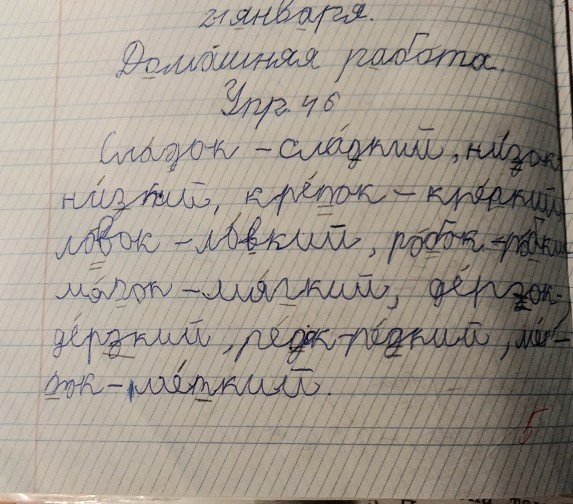 21 января.
Домашняя работа.
Упр. 46
Сладок - сладкий, низок-
низкий, крепок - крепкий,
ловок - ловкий, робок - робкий
мягок - мягкий, дерзок-
дерзкий, редок - редкий, ме-
ток - меткий.
5